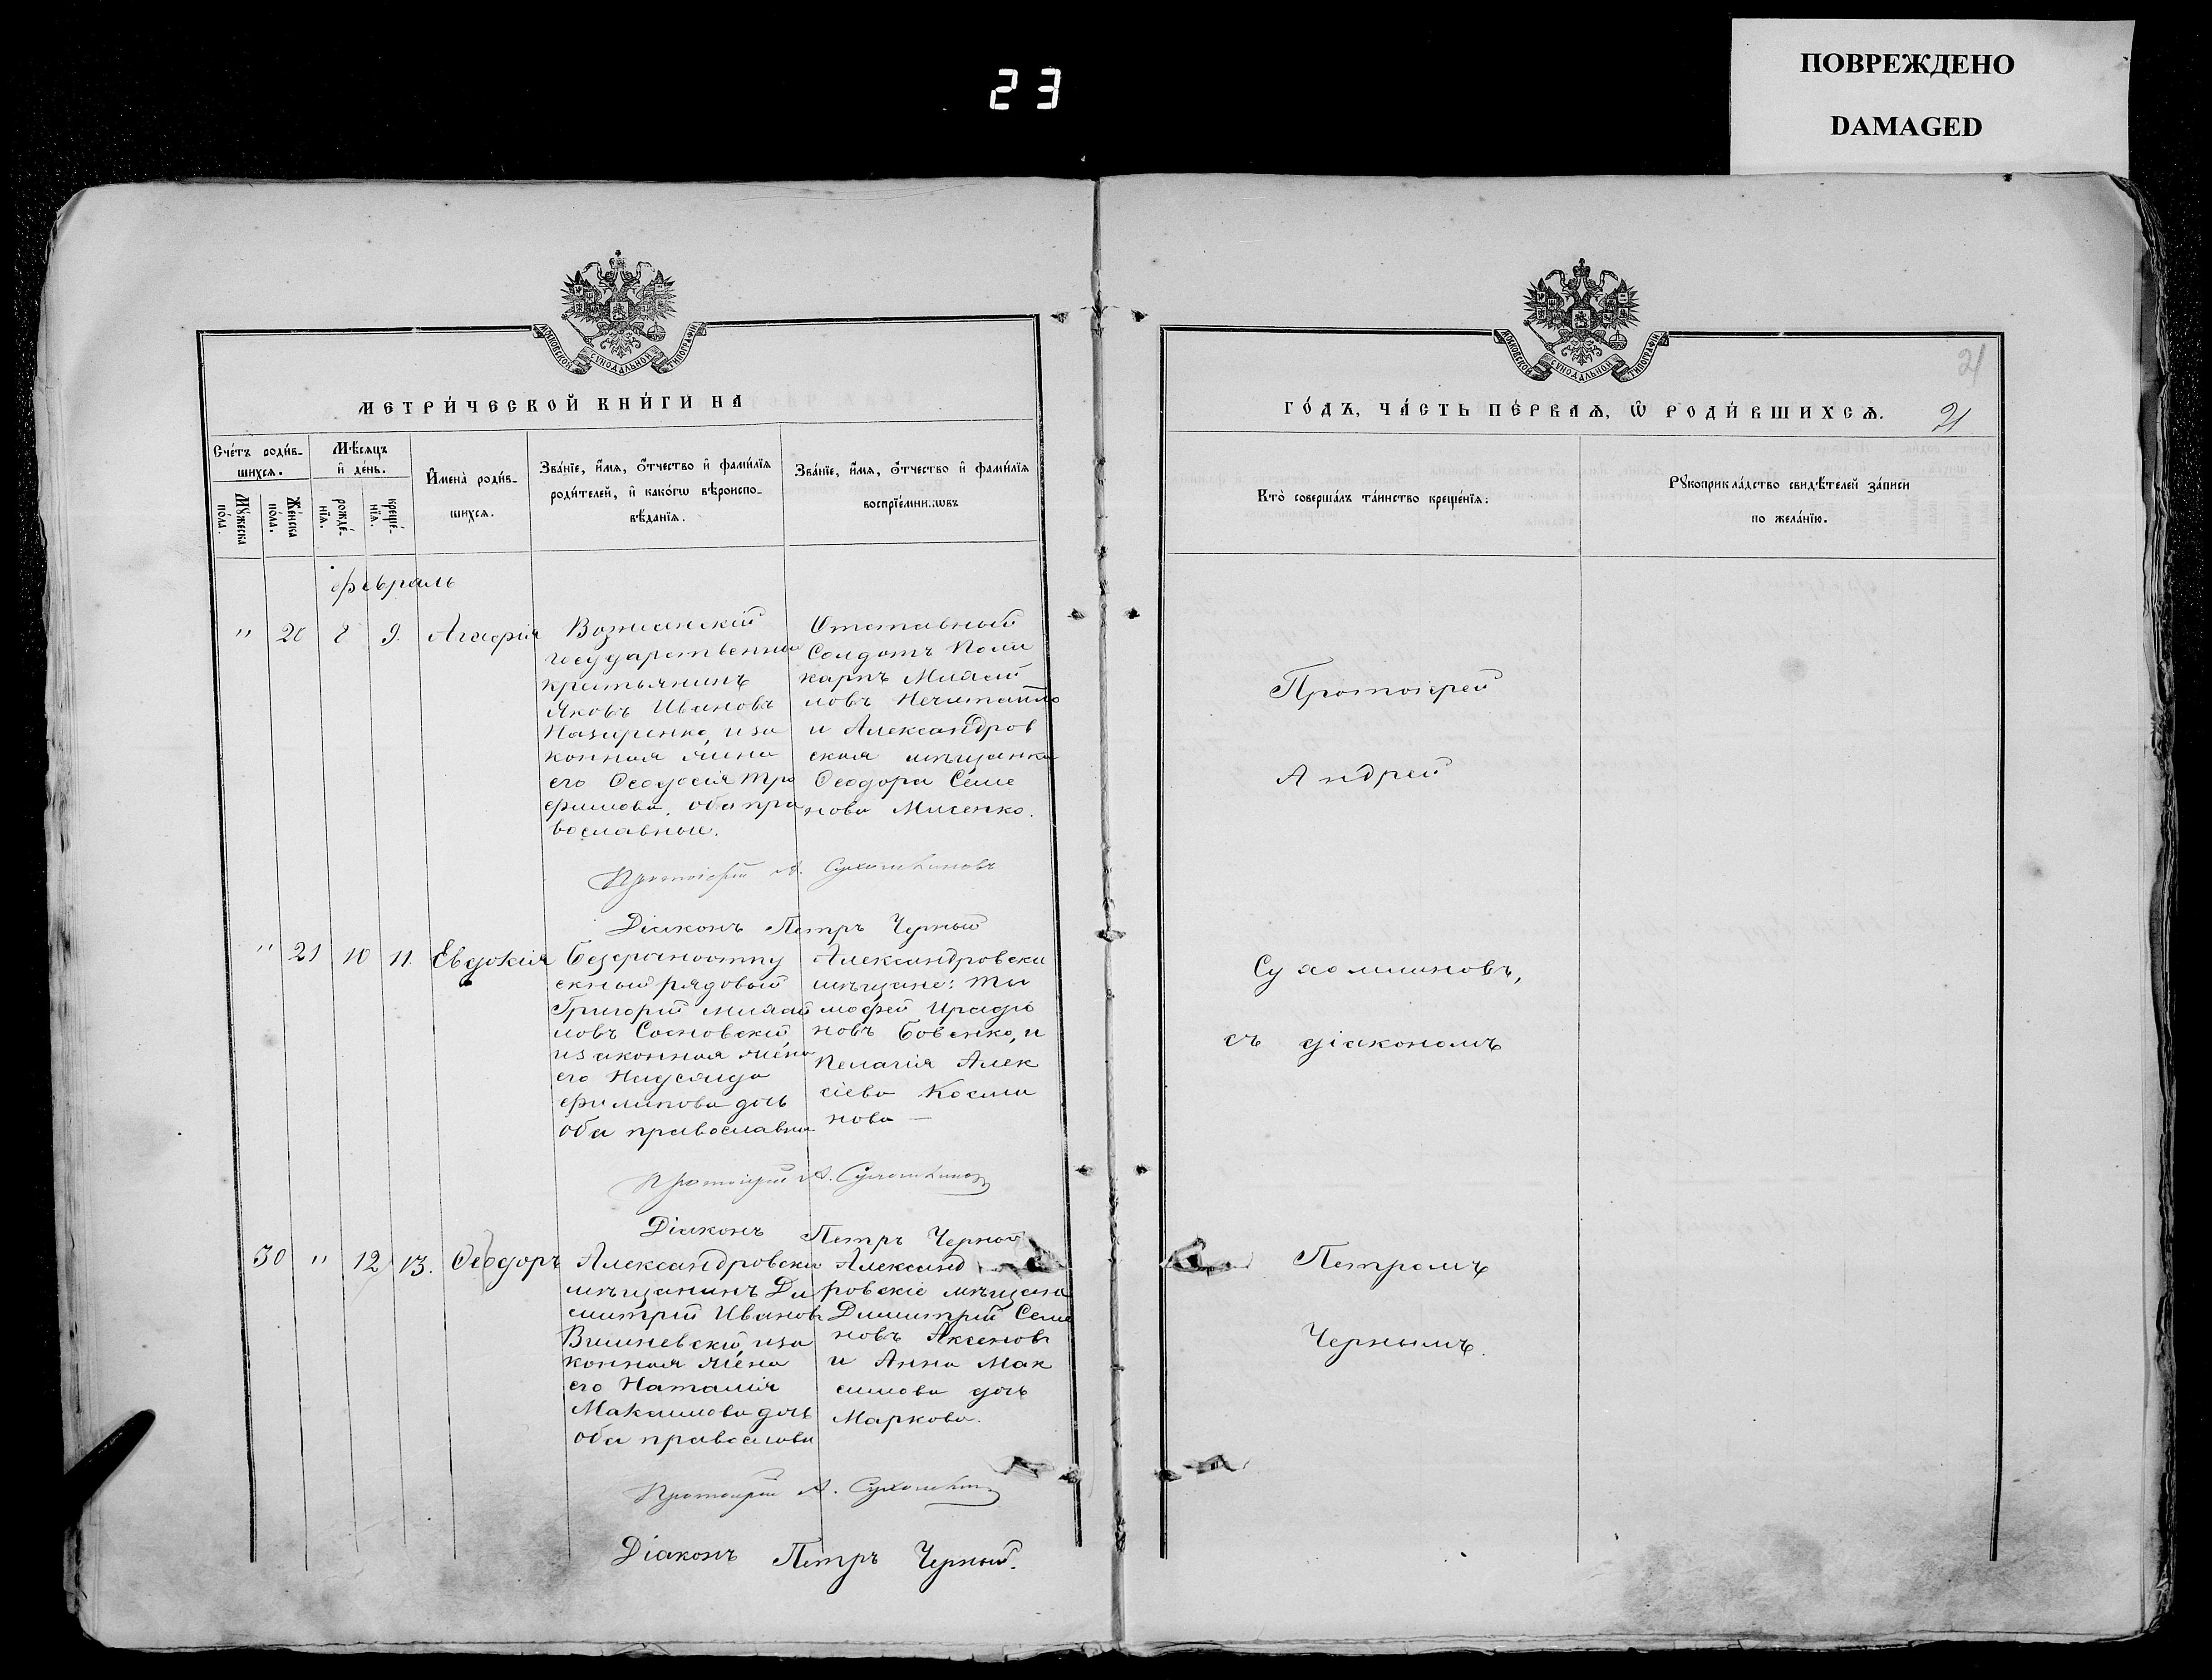 23
ПОВРЕЖДЕНО
DAMAGED
МОСКОВСКОЙ СѴНОДАЛЬНОЙ ТИПОГРАФІИ
МЕТРИ́ЧЕСКОЙ КНИ́ГИ НА
Сче́тъ роди́в-
шихсѧ.
Мѣ́сяцъ
и҆ де́нь.
Му́жеска
по́ла.
Же́нска
по́ла.
рожде́-
нїѧ.
креще́-
нїѧ.
И҆мена̀ роди́в-
шихсѧ.
Зва́нїе, и҆́мѧ, ѻ҆́тчество и҆ фами́лїѧ
роди́телей, и҆ како́гѡ вѣроиспо-
вѣ́данїѧ.
Зва́нїе, и҆́мѧ, ѻ҆́тчество и҆ фами́лїѧ
воспрїе́мниковъ
февраль
" 20 8 9. Агафія
Вознесенскій
государственный
крестьянинъ
Яковъ Ивановъ
Назаренко, и за
конная жена
его Ѳеодосія Тро
фимова, оба пра
вославные.
Отставный
Солдатъ Поли
карпъ Михай
ловъ Нечитайло
и Александров
ская мѣщанка
Ѳеодора Семе
нова Мисенко.
Протоіерей А. Сухомлиновъ
Діаконъ Петръ Черный
" 21 10 11. Евдокія
Безсрочноотпу
скный рядовый
Григорій Михай
ловъ Сосновскій,
и законная жена
его Надежда
Филипова дочь
оба православны
Александровски
мѣщане: Ти
мофей Ирадіо
новъ Бовенко, и
Пелагія Алек
сіева Косми
нова —
Протоіерей А. Сухомлиновъ
Діаконъ Петръ Черный
30 " 12 13. Ѳеодоръ
Александровски
мѣщанинъ Ди
митрій Ивановъ
Вишневскій, и за
конная жена
его Наталія
Максимова дочь
оба православн
Александ
ровскіе мѣщане
Димитрій Семе
новъ Аксеновъ
и Анна Мак
симова дочь
Маркова.
Протоіерей А. Сухомлинов
Діаконъ Петръ Черный.
МОСКОВСКОЙ СѴНОДАЛЬНОЙ ТИПОГРАФІИ
21
ГО́ДЪ, ЧА́СТЬ ПЕ́РВАѦ, Ѡ҆ РОДИ́ВШИХСѦ.
21
Кто̀ соверша́лъ та́инство креще́нїѧ:
Рꙋкоприкла́дство свидѣ́телей за́писи
по жела́нїю.
Протоіерей
Андрей
Сухомлиновъ,
съ діакономъ
Петромъ
Чернымъ.